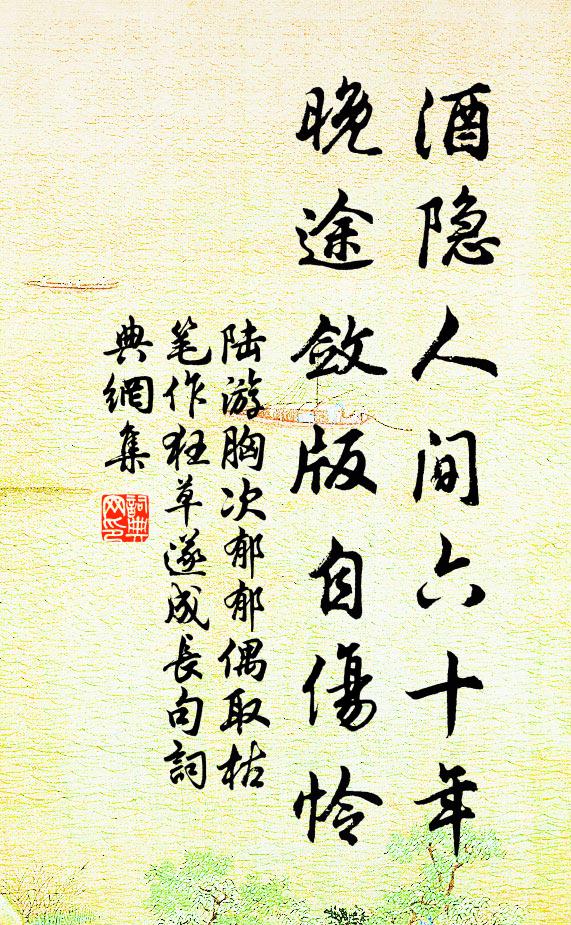 酒隐人间六十年
晚途敛版自傷怜
陆游胸次郁郁偶取枯
笔作狂草遂成長句詞
典網集
詞典
网印